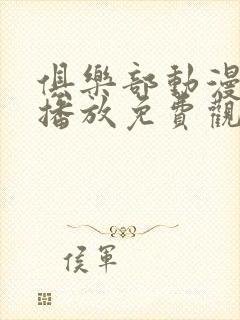 俱樂部動漫
播放免費觀
侯軍